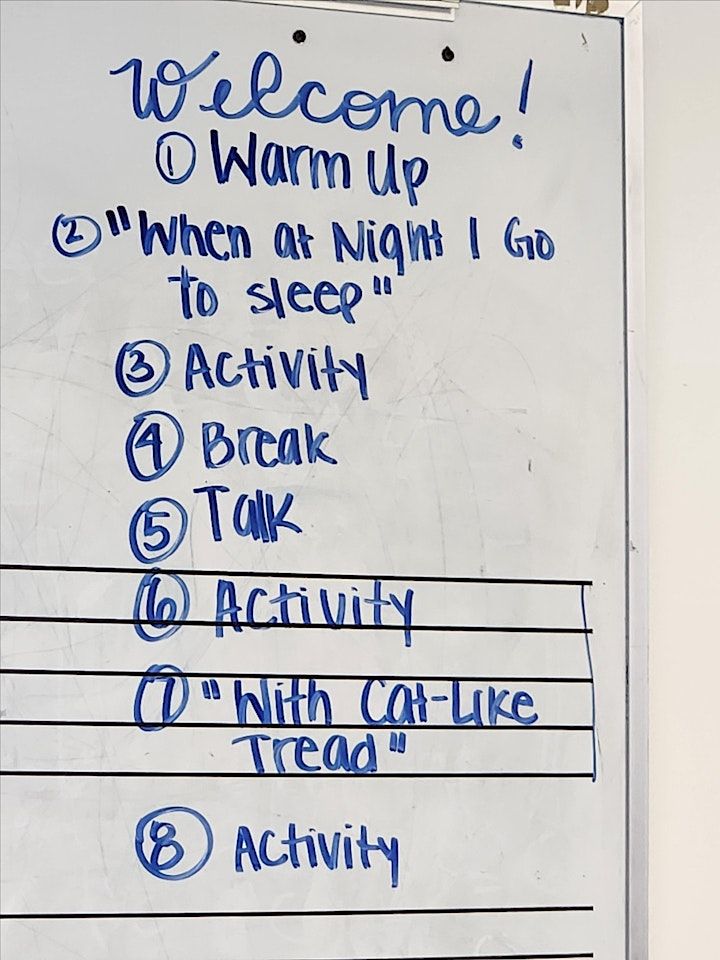 Welcome!
① Warm Up
② "When at Night I Go
to sleep"
③ Activity
④ Break
⑤ Talk
⑥ Activity
⑦ "With Cat-Like
Tread"
⑧ Activity